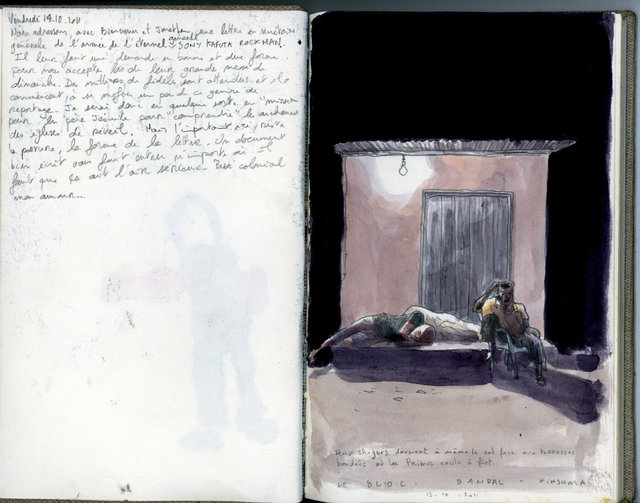 Vendredi 14.10.2011
Nous adressons, avec Bienvenu et Jonathan, une lettre au secrétaire
générale de l'armée de l'éternel général SONY KAFUTA ROCKMAN.
Il leur faut une demande en bonne et due forme
pour nous accepter lors de leur grande messe de
dimanche. Des milliers de fidèles sont attendus et ils
commencent à se méfier un peu de ce genre de
reportage. Je serai donc en quelque sorte en "mission
pour le père Jésuite pour "comprendre" le
des églises de réveil. Mais l'important ici, reste
la posture, la forme de la lettre. Un document
bien écrit vous fait entrer n'importe où. Il
faut que ça ait l'air sérieux. Passé colonial
mon amour...
Deux shégués dorment à même le sol face aux terrasses
bondées où la Primus coule à flot.
LE BLOC - BANDAL - KINSHASA
13.10.2011